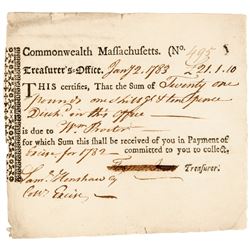 Commonwealth Massachusetts. (No. 495
Treasurer's-Office, Jan 2. 1783 £21.1.10
THIS certifies, That the Sum of Twenty one
Pounds one Shills & Ten Pence
in this Office
is due to Wm
for which Sum this shall be received of you in Payment of
Excise for 1782 committed to you to collect,
Treasurer.
Saml Henshaw
Excise